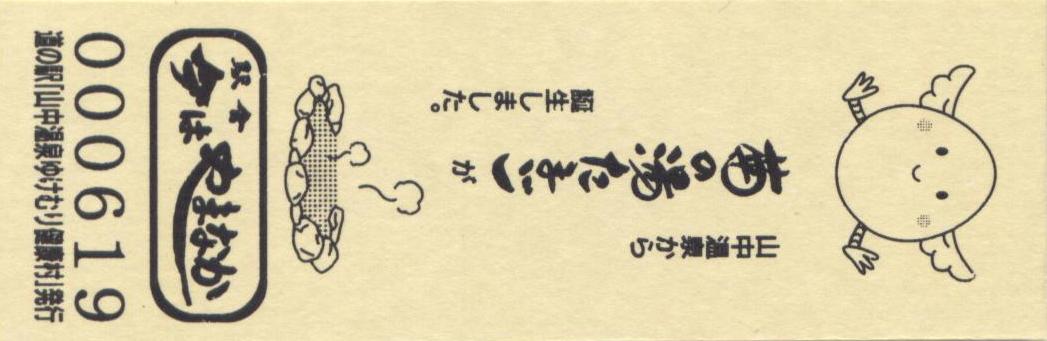 山中温泉から
菊の湯たまごが
誕生しました。
駅舎
今は
やまなか
000619
道の駅「山中温泉ゆけむり健康村」発行